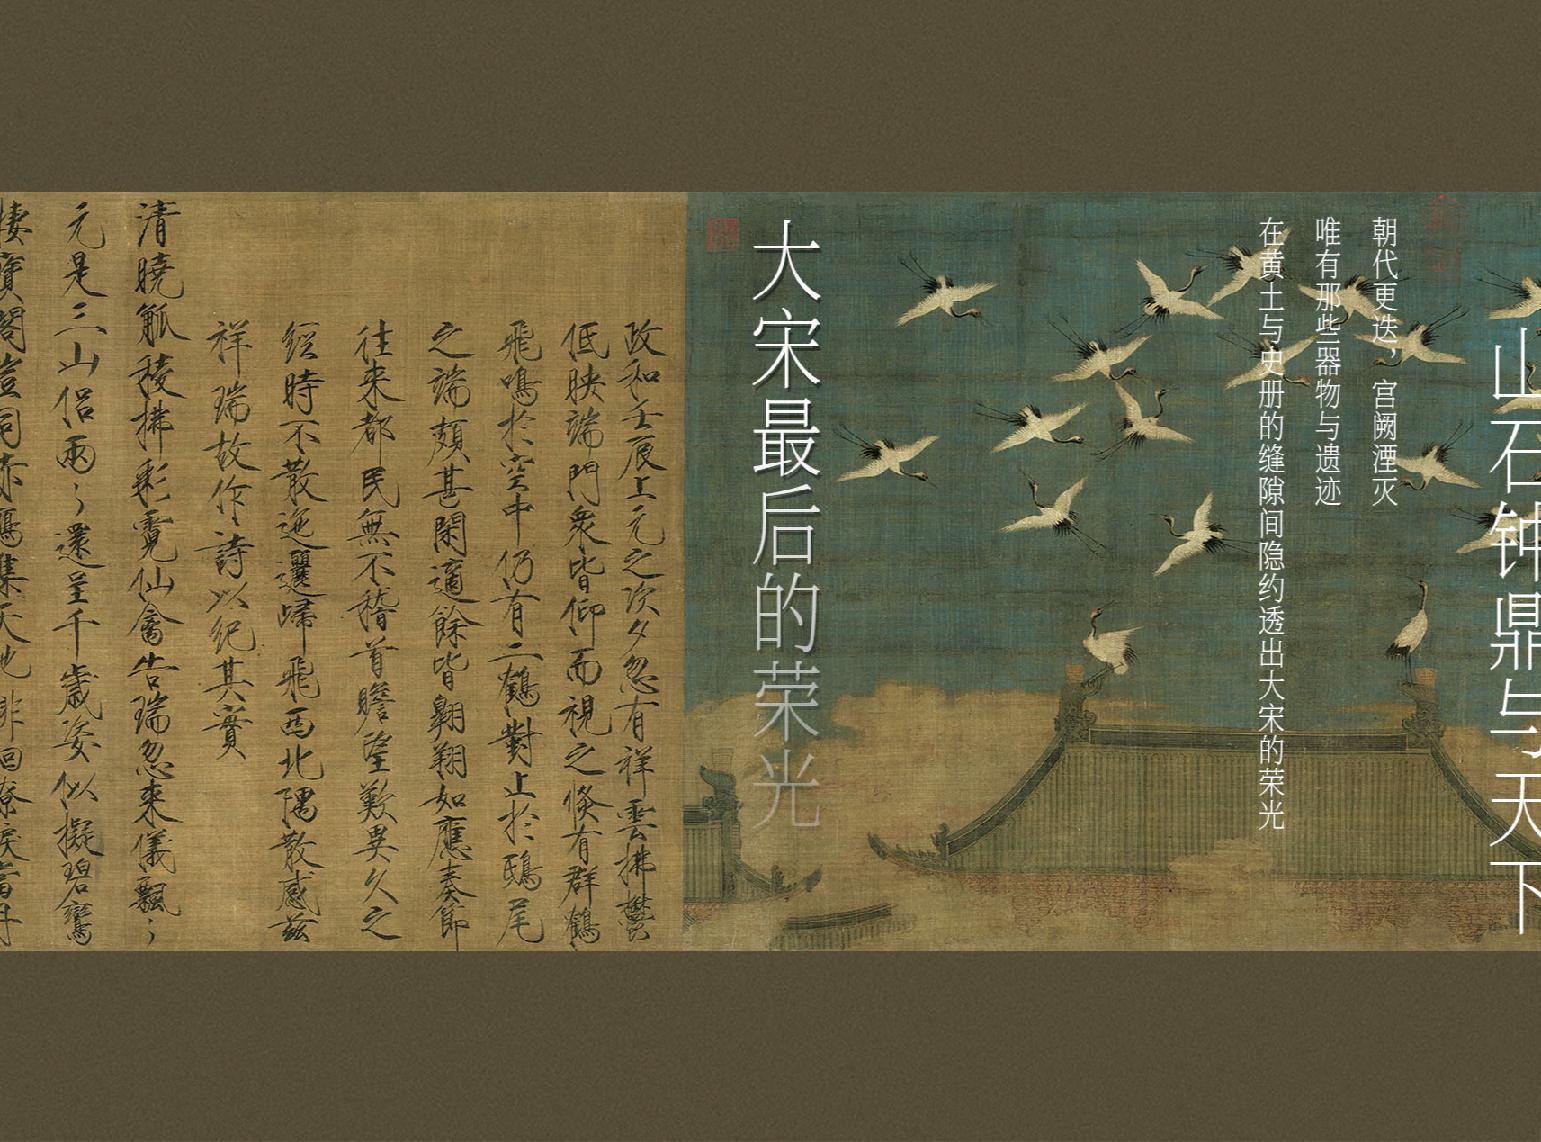 山石钟鼎与天下
朝代更迭，宫阙湮灭
唯有那些器物与遗迹
在黄土与史册的缝隙间隐约透出大宋的荣光
大宋最后的荣光
政和壬辰上元之次夕忽有祥雲拂鬱
低映端門衆皆仰而視之倏有群鶴
飛鳴於空中仍有二鶴對止於鴟尾
之端頗甚閑適餘皆翱翔如應奏節
往来都民無不稽首瞻望歎異久之
經時不散迤邐歸飛西北隅散感茲
祥瑞故作詩以紀其實
清曉觚稜拂彩霓仙禽告瑞忽来儀飄〻
元是三山侶兩〻還呈千歳姿似擬碧鸞
棲寳閣豈同赤鴈集天池徘徊嘹唳當丹